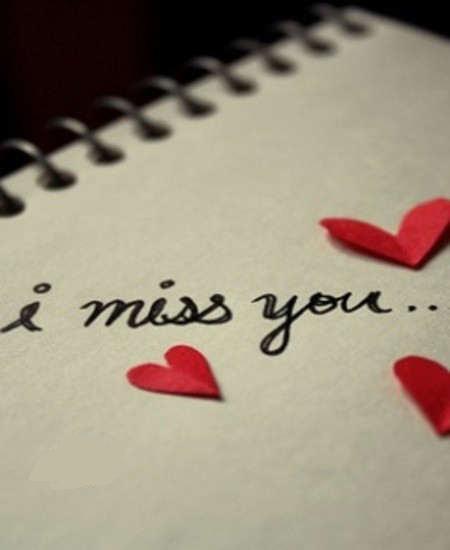 i miss you..